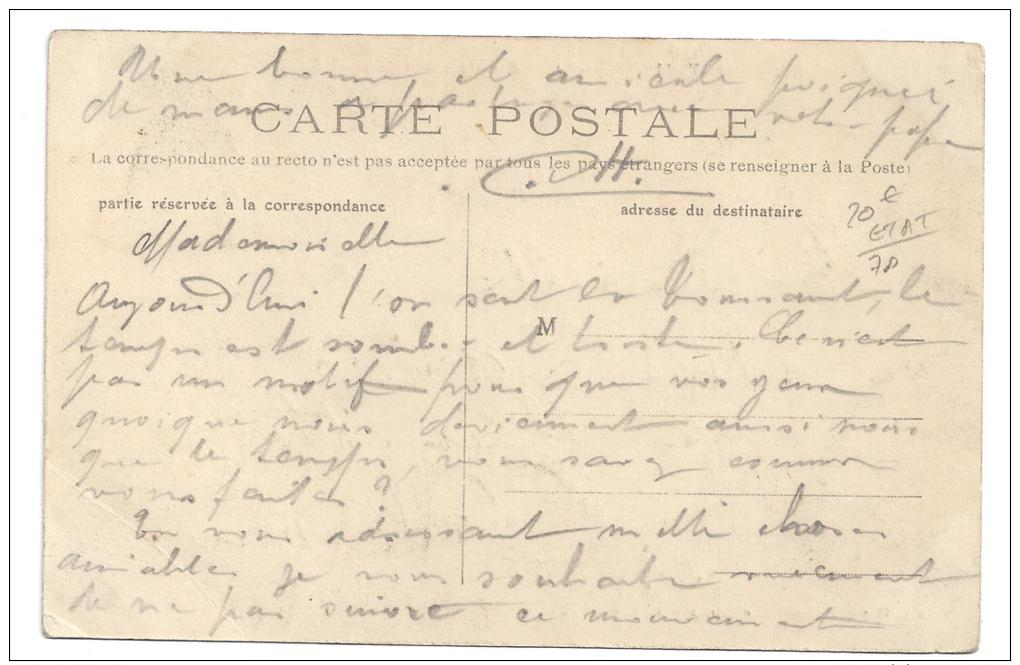 Une bonne et amicale poignée
de mains à partager avec votre papa
CARTE POSTALE
La correspondance au recto n'est pas acceptée par tous les pays étrangers (se renseigner à la Poste)
partie réservée à la correspondance
adresse du destinataire
20 €
ETAT
78
Mademoiselle
Aujourd'hui l'on sent le Toussaint, le
M
temps est sombre et triste. Ce n'est
pas un motif pour que vos yeux
quoique noirs deviennent aussi noirs
que le temps, vous savez comme
vous faites ?
En vous adressant mille choses
aimables je vous souhaite vivement
de ne pas suivre ce mouvement